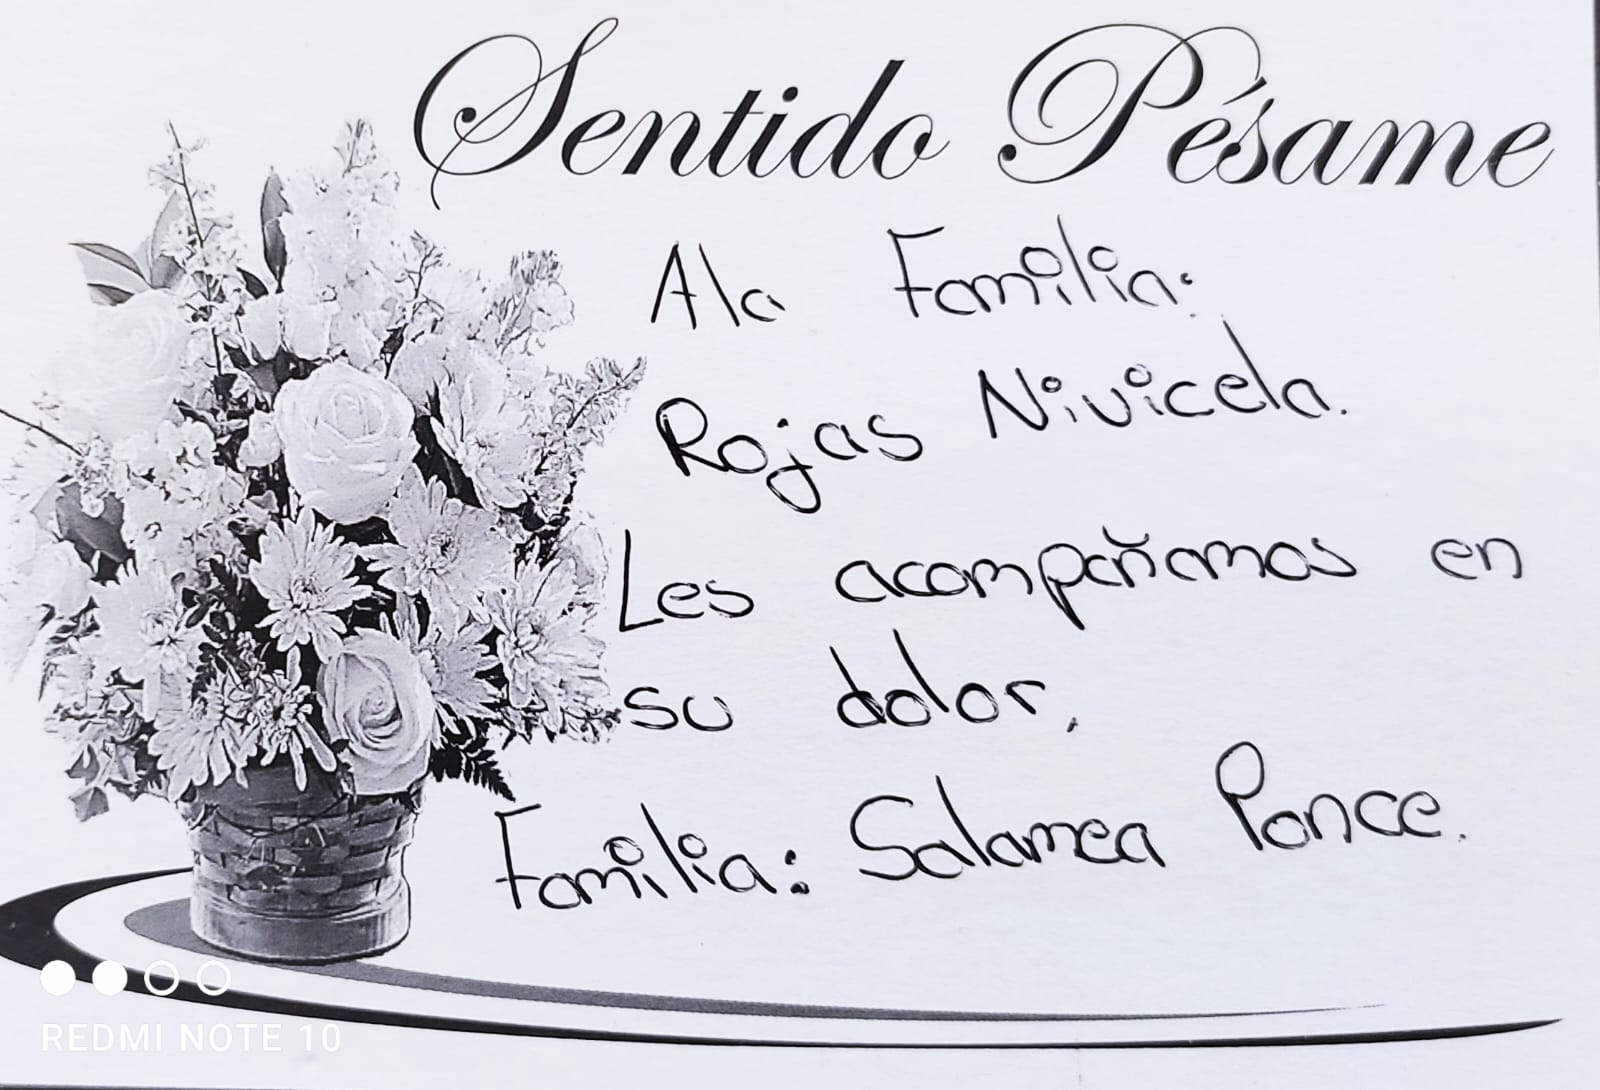 Sentido Pésame
A la Familia:
Rojas Nivicela.
Les acompañamos en
su dolor,
Familia: Salamea Ponce.
REDMI NOTE 10